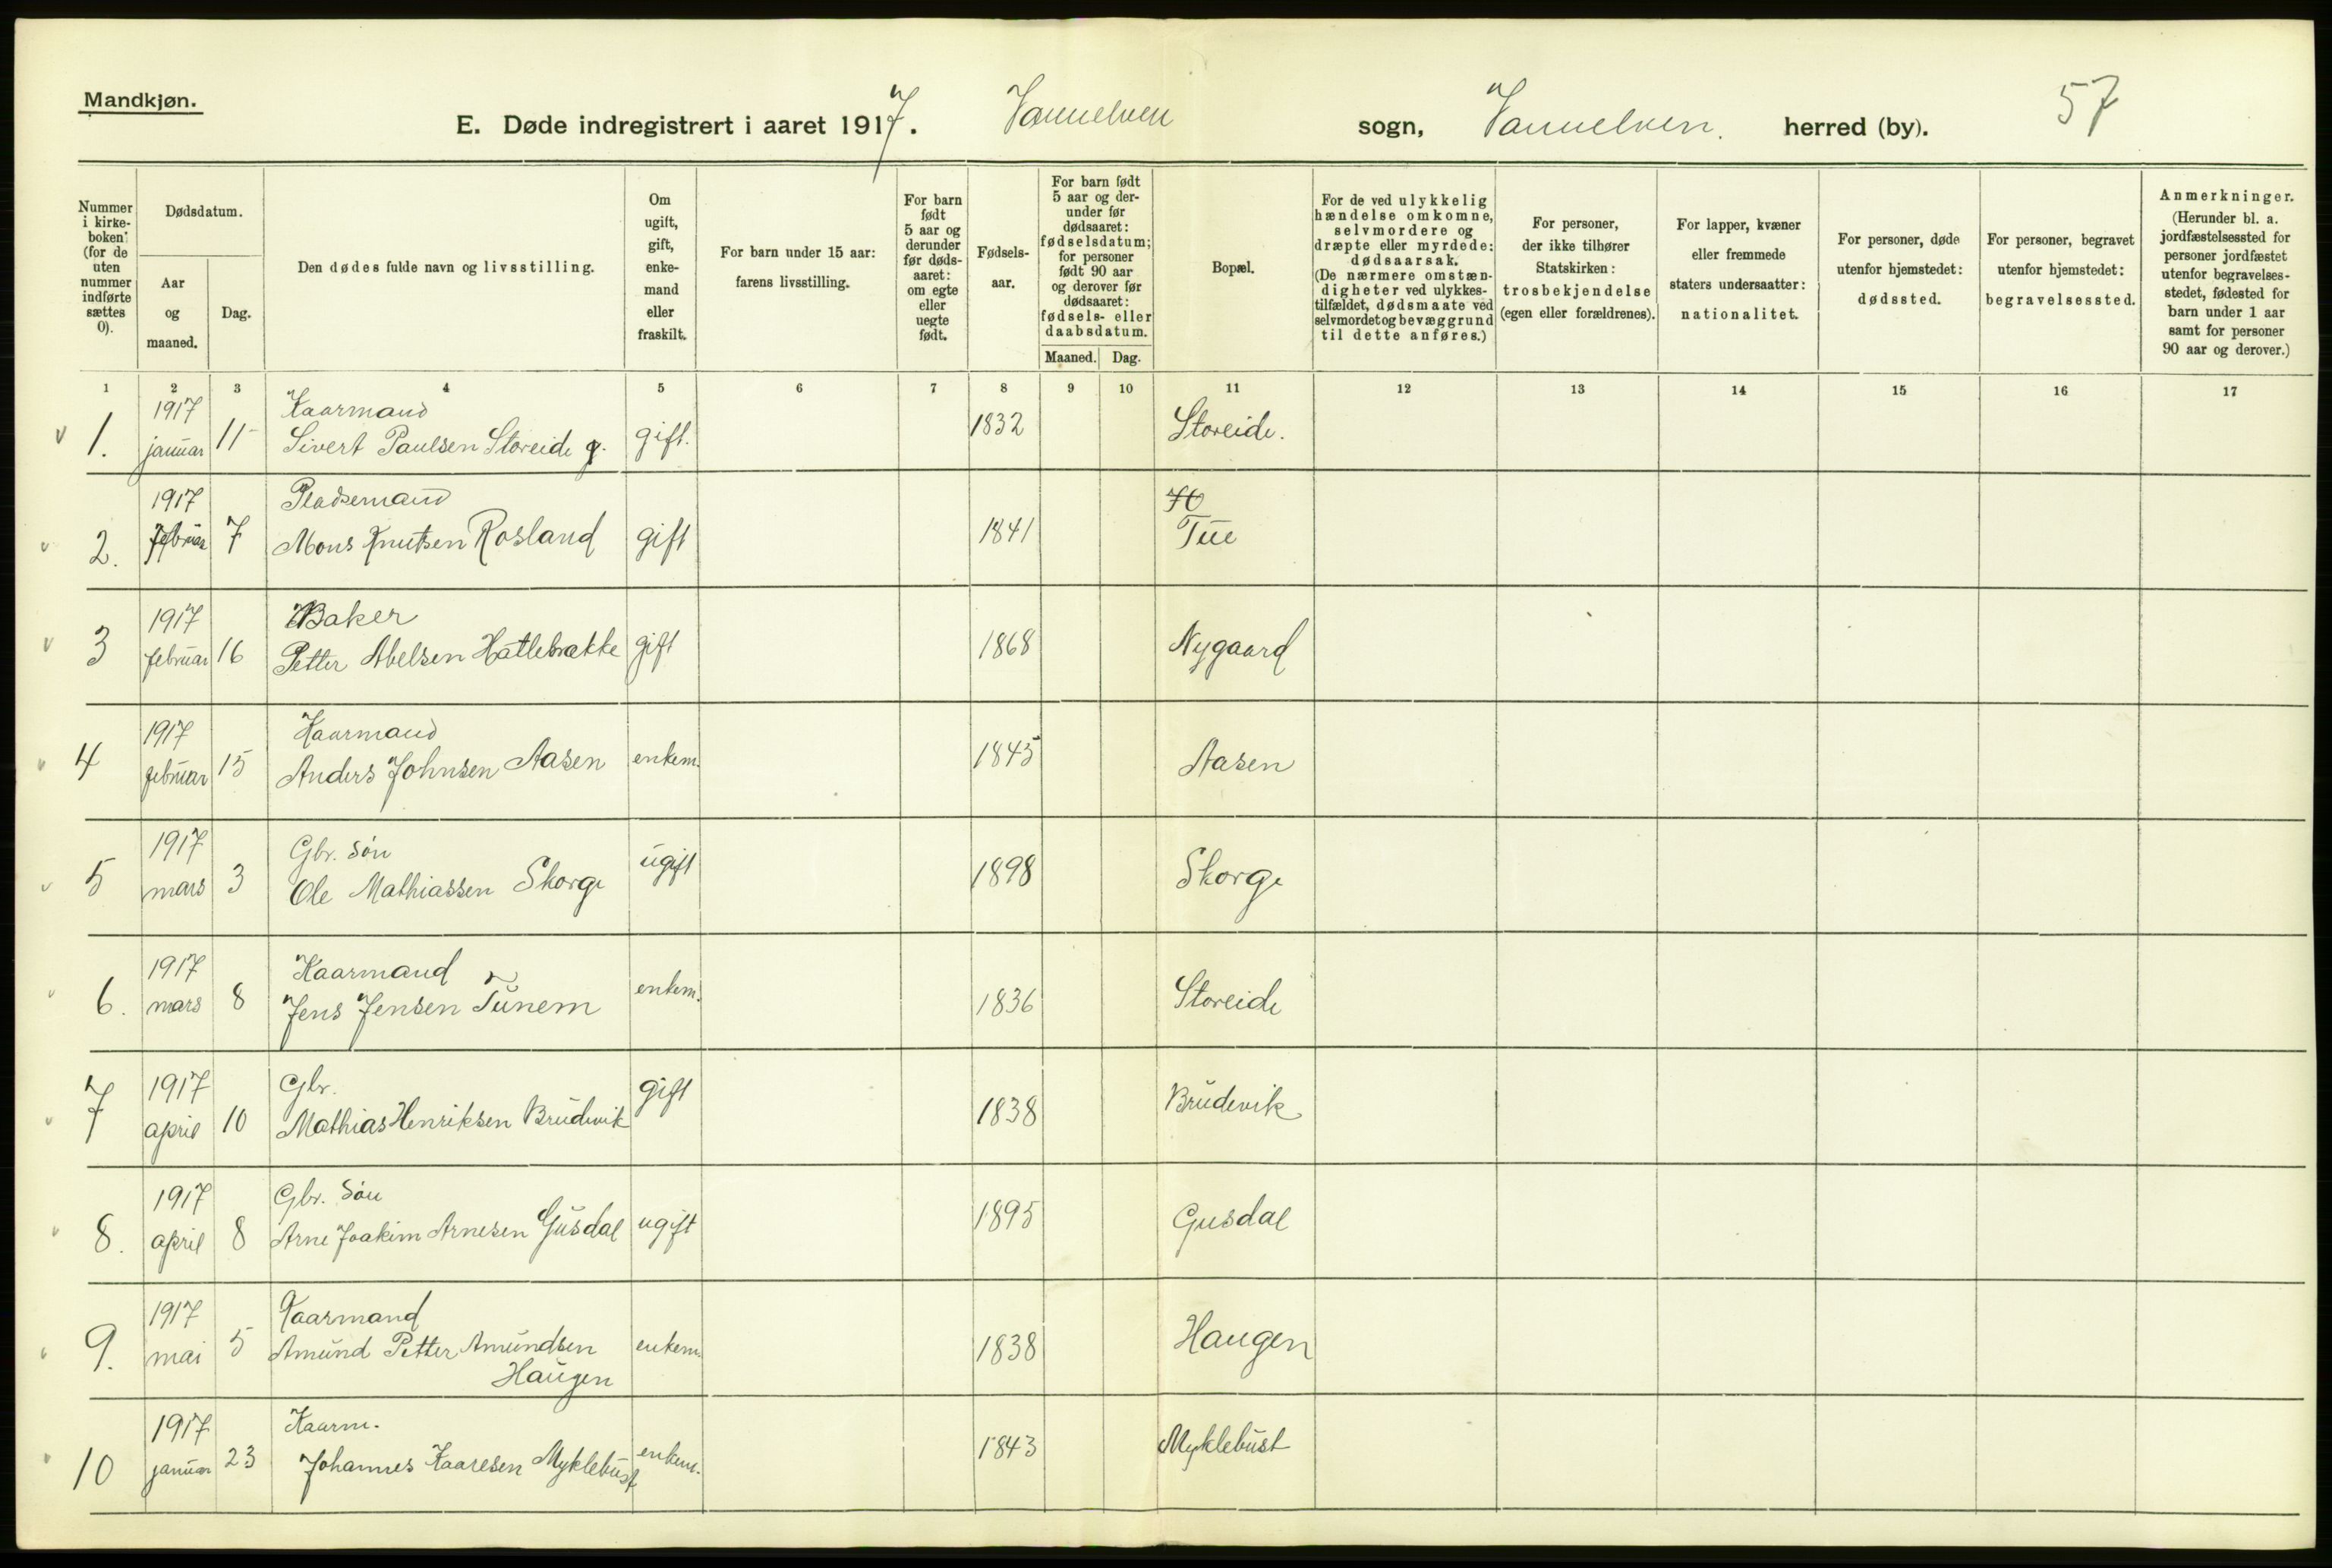 Mandkjøn.
E. Døde indregistrert i aaret 1917. Vannelven sogn, Vannelven. herred (by). 57
Nummer i kirke-boken: (for de uten nummer indførte sættes 0).
Dødsdatum.
Aar og maaned.
Dag.
Den dødes fulde navn og livsstilling.
Om ugift, gift, enke-mand eller fraskilt.
For barn under 15 aar: farens livsstilling.
For barn født 5 aar og derunder før døds-aaret: om egte eller uegte født.
Fødsels-aar.
For barn født 5 aar og der-under før dødsaaret: fødselsdatum; for personer født 90 aar og derover før dødsaaret: fødsels- eller daabsdatum.
Maaned. Dag.
Bopæl.
For de ved ulykkelig hændelse omkomne, selvmordere og dræpte eller myrdede: dødsaarsak. (De nærmere omstæn-digheter ved ulykkes-tilfældet, dødsmaate ved selvmordet og bevæggrund til dette anføres.)
For personer, der ikke tilhører Statskirken: trosbekjendelse (egen eller forældrenes).
For lapper, kvæner eller fremmede staters undersaatter: nationalitet.
For personer, døde utenfor hjemstedet: dødssted.
For personer, begravet utenfor hjemstedet: begravelsessted.
Anmerkninger. (Herunder bl. a. jordfæstelsessted for personer jordfæstet utenfor begravelses-stedet, fødested for barn under 1 aar samt for personer 90 aar og derover.)
1 2 3 4 5 6 7 8 9 10 11 12 13 14 15 16 17
1917 Kaarmand
1. januar 11 Sivert Paulsen Storeide g. gift. 1832 Storeide.
1917 Pladsemand
2. februar 7 Mons Knutsen Rosland gift 1841 Tue
1917 Baker
3 februar 16 Petter Abelsen Hatlebrække gift 1868 Nygaard
1917 Kaarmand
4 februar 15 Anders Johnsen Aasen enkem. 1845 Aasen
1917 Gbr. søn
5 mars 3 Ole Mathiassen Skorge ugift 1898 Skorge
1917 Kaarmand
6. mars 8 Jens Jensen Tunem enkem. 1836 Storeide
1917 Gbr.
7 april 10 Mathias Henriksen Brudevik gift 1838 Brudevik
1917 Gbr. søn
8. april 8 Arne Joakim Arnesen Gusdal ugift 1895 Gusdal
1917 Kaarmand
9. mai 5 Amund Petter Amundsen enkem. 1838 Haugen
Haugen
1917 Kaarm.
10 januar 23 Johannes Kaaresen Myklebust enkem. 1843 Myklebust